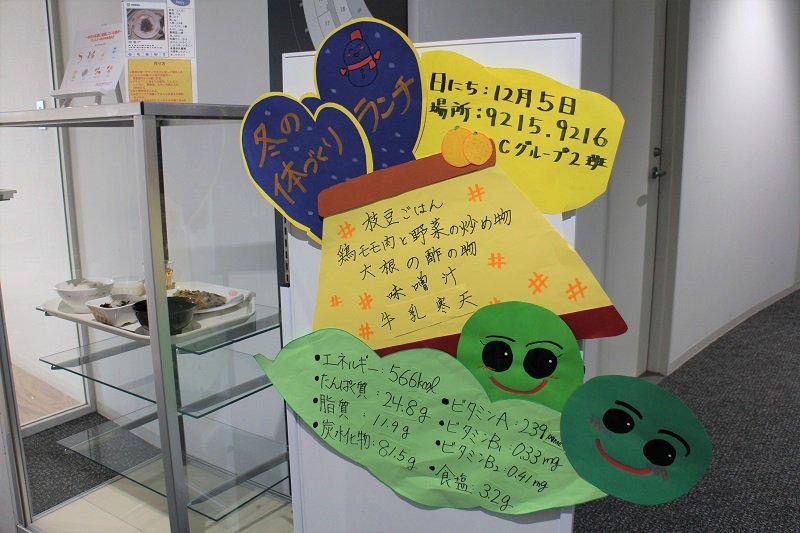 冬の
体づくり
ランチ
日にち:12月5日
場所:9215.9216
Cグループ2班
枝豆ごはん
鶏モモ肉と野菜の炒め物
大根の酢の物
味噌汁
牛乳寒天
・エネルギー:566kcal
・たんぱく質:24.8g
・脂質:11.9g
・炭水化物:81.5g
・ビタミンA:239
・ビタミンB₁:0.33mg
・ビタミンB₂:0.41mg
・食塩:3.2g